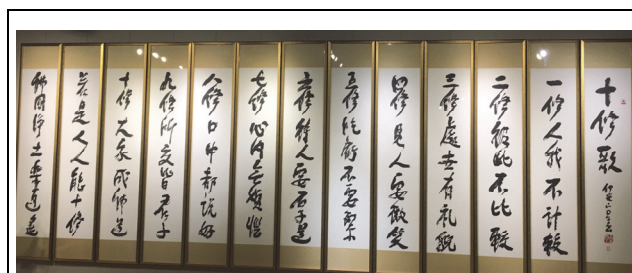 十修歌
一修人我不計較
二修彼此不比較
三修處世有禮貌
四修見人要微笑
五修吃虧不要緊
六修待人要厚道
七修心內無煩惱
八修口中都說好
九修所交皆君子
十修大家成佛道
若是人人能十修
佛國淨土樂逍遙